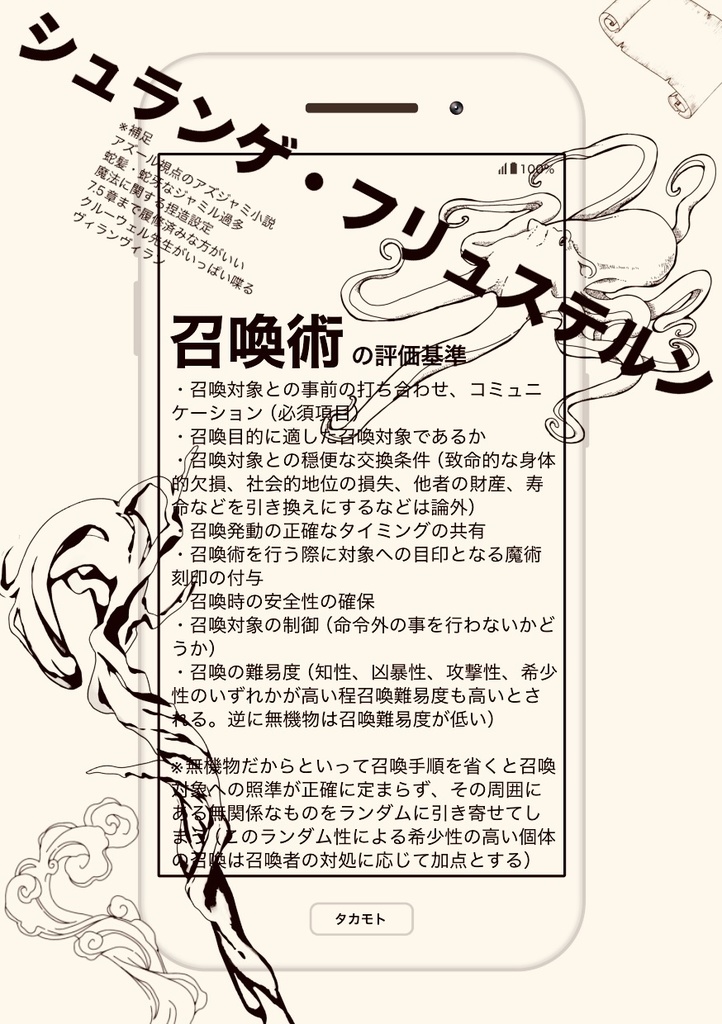 シュランゲ・フリュステルン
※補足
アズール視点のアズジャミ小説
蛇髪・蛇牙なジャミル過多
魔法に関する捏造設定
7.5章まで履修済みな方がいい
クルーウェル先生がいっぱい喋る
ヴィランヴィラン
100%
召喚術 の評価基準
・召喚対象との事前の打ち合わせ、コミュニ
ケーション（必須項目）
・召喚目的に適した召喚対象であるか
・召喚対象との穏便な交換条件（致命的な身体
的欠損、社会的地位の損失、他者の財産、寿
命などを引き換えにするなどは論外）
・召喚発動の正確なタイミングの共有
・召喚術を行う際に対象への目印となる魔術
刻印の付与
・召喚時の安全性の確保
・召喚対象の制御（命令外の事を行わないかど
うか）
・召喚の難易度（知性、凶暴性、攻撃性、希少
性のいずれかが高い程召喚難易度も高いとさ
れる。逆に無機物は召喚難易度が低い）
※無機物だからといって召喚手順を省くと召喚
対象への照準が正確に定まらず、その周囲に
ある無関係なものをランダムに引き寄せてし
まう（このランダム性による希少性の高い個体
の召喚は召喚者の対処に応じて加点とする）
タカモト